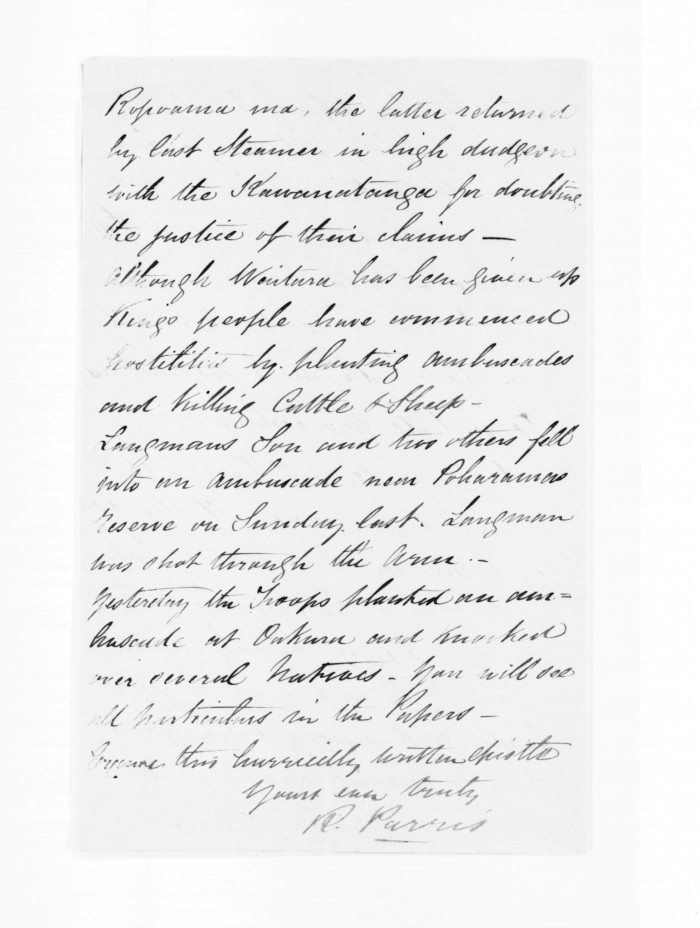 Ropoama ma, the latter returned
by last Steamer in high dudgeon
with the Kawanatanga for doubting
the justice of their claims —
although Waitara has been given up
Kings people have commenced
hostilities by planting ambuscades
and Killing Cattle & Sheep -
Langmans Son and two others fell
into an ambuscade near Poharamas
reserve on Sunday last. Langman
was shot through the arm. -
Yesterday the Troops planted an am=
buscade at Oakura and knocked
over several Natives - You will see
all particulars in the Papers -
Excuse this hurriedly written epistle
Yours ever truly
R. Parris